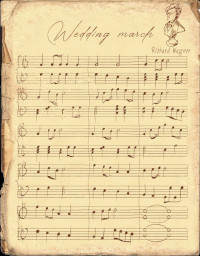 Wedding march
Richard Wagner